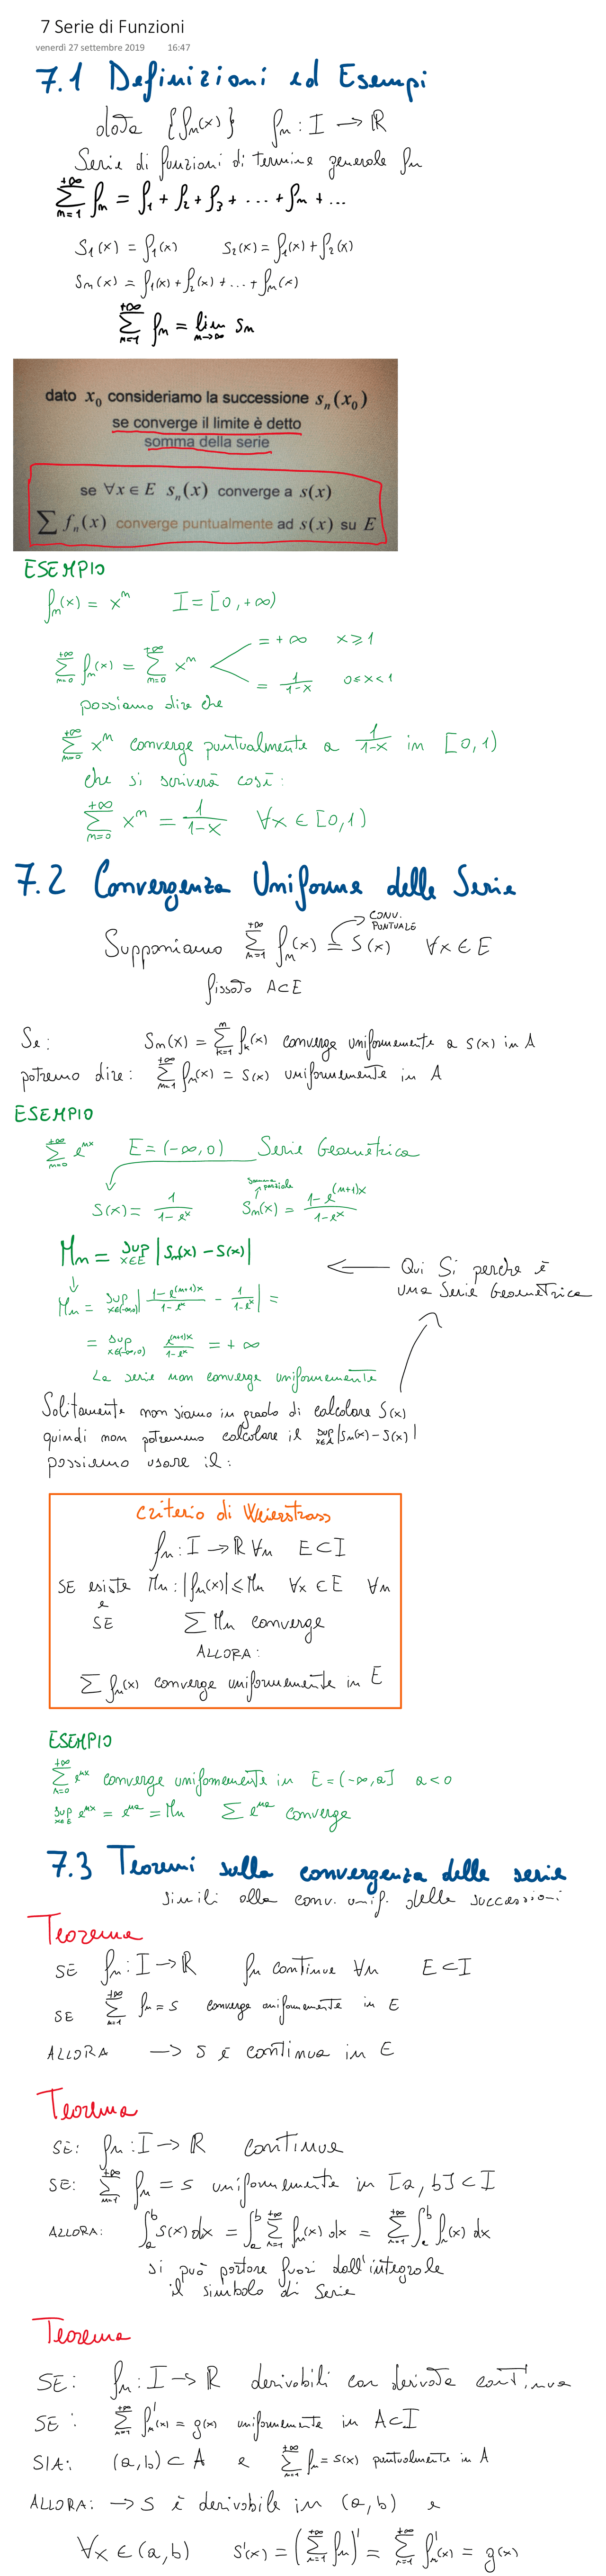 7 Serie di Funzioni
venerdì 27 settembre 2019 16:47
7.1 Definizioni ed Esempi
data {fn(x)} fn : I → ℝ
Serie di funzioni di termine generale fn
∑_{n=1}^{+∞} fn = f1 + f2 + f3 + ... + fn + ...
S1(x) = f1(x) S2(x) = f1(x) + f2(x)
Sn(x) = f1(x) + f2(x) + ... + fn(x)
∑_{n=1}^{+∞} fn = lim_{n→∞} Sn
dato x0 consideriamo la successione sn(x0)
se converge il limite è detto
somma della serie
se ∀x ∈ E sn(x) converge a s(x)
∑ fn(x) converge puntualmente ad s(x) su E
ESEMPIO
fn(x) = x^n I = [0, +∞)
= +∞ x ⩾ 1
∑_{n=0}^{+∞} fn(x) = ∑_{n=0}^{+∞} x^n
= 1/(1-x) 0 ≤ x < 1
possiamo dire che
∑_{n=0}^{+∞} x^n converge puntualmente a 1/(1-x) in [0,1)
che si scriverà così:
∑_{n=0}^{+∞} x^n = 1/(1-x) ∀x ∈ [0,1)
7.2 Convergenza Uniforme delle Serie
→ CONV. PUNTUALE
Supponiamo ∑_{n=1}^{+∞} fn(x) = S(x) ∀x ∈ E
fissato A⊂E
Se: Sn(x) = ∑_{k=1}^{n} fk(x) converge uniformemente a S(x) in A
potremo dire: ∑_{n=1}^{+∞} fn(x) = S(x) uniformemente in A
ESEMPIO
∑_{n=0}^{+∞} e^{nx} E = (-∞,0) Serie Geometrica
somma parziale
S(x) = 1/(1-e^x) Sn(x) = (1-e^{(n+1)x})/(1-e^x)
Mn = sup_{x∈E} |Sn(x) - S(x)|
← Qui Si perche è
una Serie Geometrica
↓
Mn = sup_{x∈(-∞,0)} |(1-e^{(n+1)x})/(1-e^x) - 1/(1-e^x)| =
= sup_{x∈(-∞,0)} e^{(n+1)x}/(1-e^x) = +∞
La serie non converge uniformemente
Solitamente non siamo in grado di calcolare S(x)
quindi non potremmo calcolare il sup_{x∈A} |Sn(x) - S(x)|
possiamo usare il:
criterio di Weierstrass
fn : I → ℝ ∀n E⊂I
SE esiste Mn : |fn(x)| ≤ Mn ∀x ∈ E ∀n
e
SE ∑ Mn converge
ALLORA:
∑ fn(x) converge uniformemente in E
ESEMPIO
∑_{n=0}^{+∞} e^{nx} converge uniformemente in E = (-∞,a] a<0
sup_{x∈E} e^{nx} = e^{na} = Mn ∑ e^{na} converge
7.3 Teoremi sulla convergenza delle serie
simili alla conv. unif. delle successioni
Teorema
SE fn : I → ℝ fn continue ∀n E⊂I
SE ∑_{n=1}^{+∞} fn = s converge uniformemente in E
ALLORA → s è continua in E
Teorema
SE: fn : I → ℝ continue
SE: ∑_{n=1}^{+∞} fn = s uniformemente in [a,b] ⊂ I
ALLORA: ∫_a^b s(x) dx = ∫_a^b ∑_{n=1}^{+∞} fn(x) dx = ∑_{n=1}^{+∞} ∫_a^b fn(x) dx
si può portare fuori dall'integrale
il simbolo di Serie
Teorema
SE: fn : I → ℝ derivabili con derivata continua
SE: ∑_{n=1}^{+∞} fn'(x) = g(x) uniformemente in A⊂I
SIA: (a,b) ⊂ A e ∑_{n=1}^{+∞} fn = s(x) puntualmente in A
ALLORA: → s è derivabile in (a,b) e
∀x ∈ (a,b) s'(x) = (∑_{n=1}^{+∞} fn)' = ∑_{n=1}^{+∞} fn'(x) = g(x)